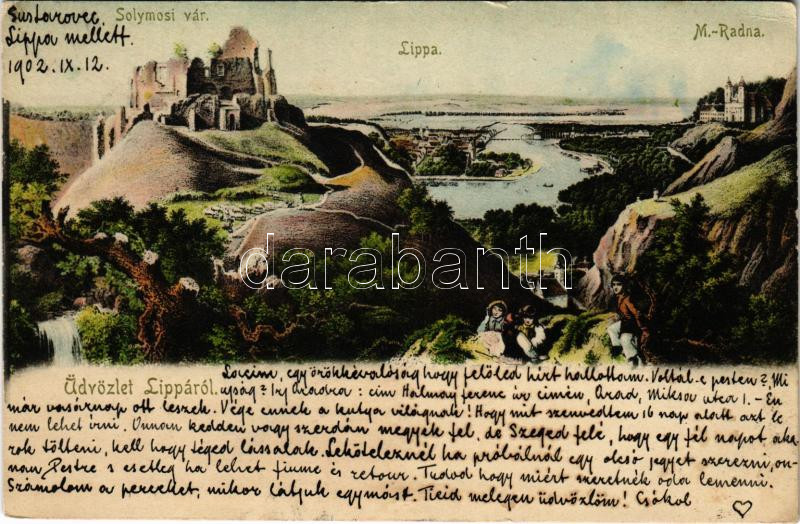 Sustarovec
Lippa mellett.
1902. IX. 12.
Solymosi vár.
Lippa.
M.-Radna.
darabanth
Üdvözlet Lippáról.
Lacim, egy örökkévalóság hogy felőled hirt hallottam. Voltál-e pesten? Mi
ujság? Irj Aradra: cim Halmay Ferenc úr cimén, Arad, Miksa utca 1. - Én
már vasárnap ott leszek. Vége ennek a kutya világnak! Hogy mit szenvedtem 16 nap alatt azt le
nem lehet irni. Onnan kedden vagy szerdán megyek fel, de Szeged felé, hogy egy fél napot aka-
rok tölteni, kell hogy téged lássalak. Leköteleznél ha próbálnál egy olcsó jegyet szerezni, on-
nan Pestre s esetleg ha lehet fiume és retour. Tudod hogy miért szeretnék oda lemenni.
Számolom a perceket, mikor látjuk egymást. Ticid melegen üdvözlöm! Csókol